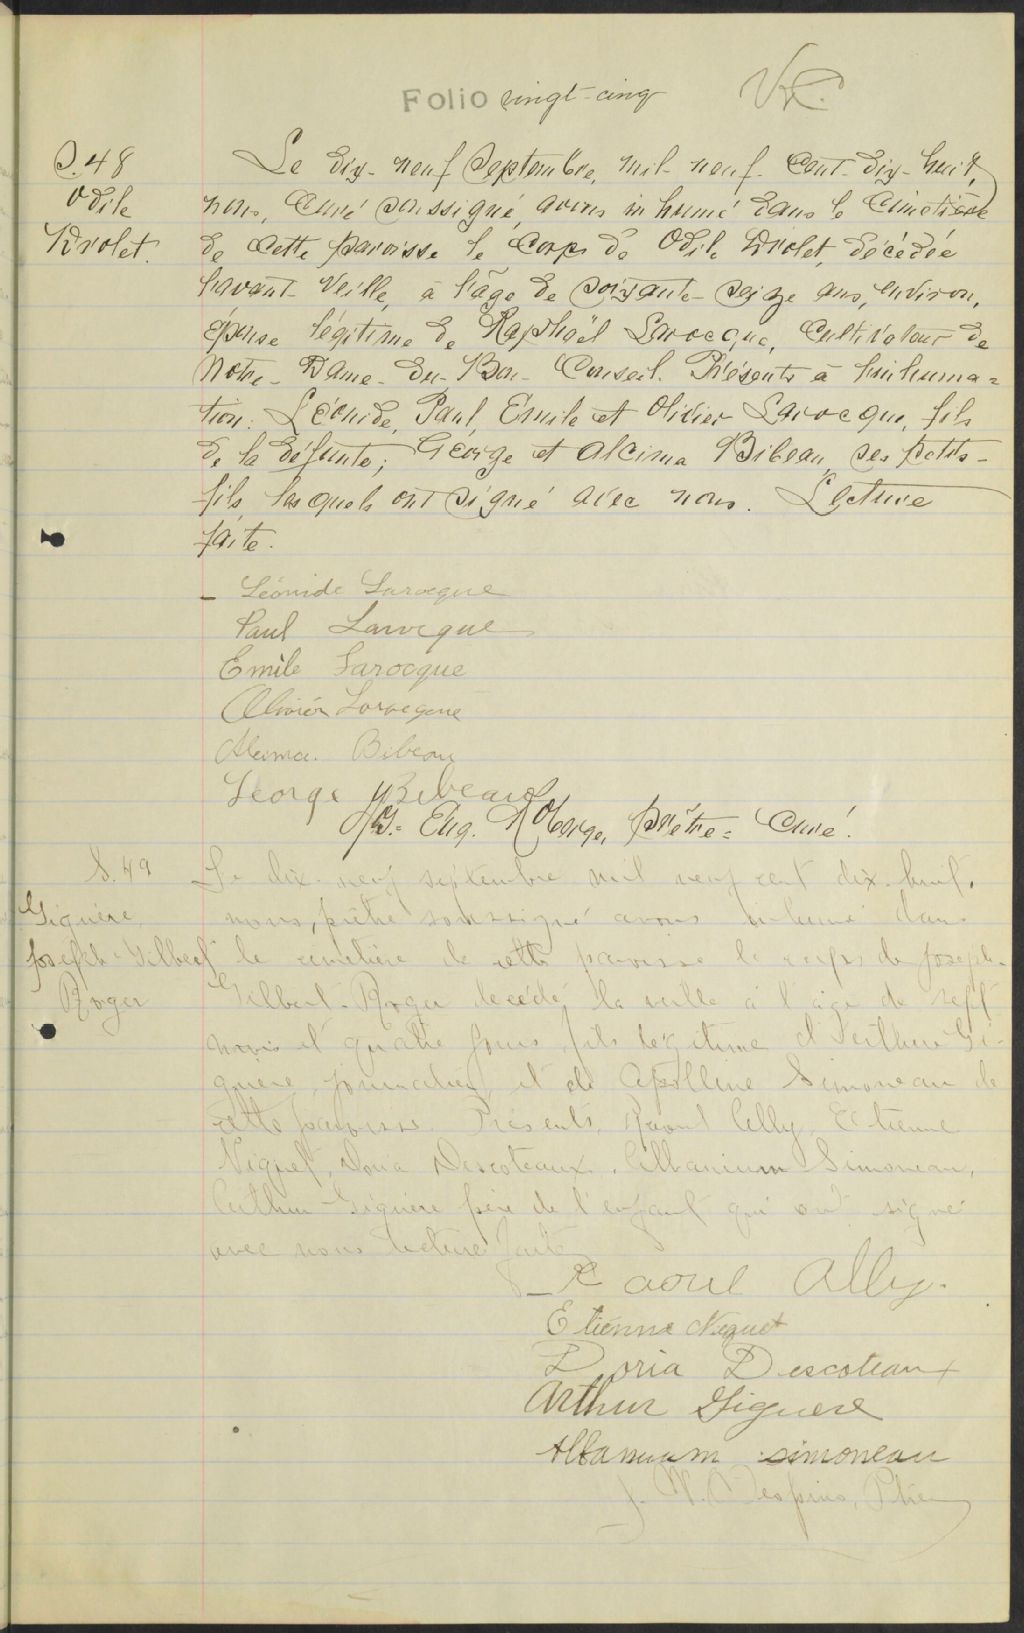 Folio vingt-cinq
S. 48
Odile
Drolet.
Le dix-neuf Septembre, mil-neuf-cent-dix-huit,
nous, Curé soussigné, avons inhumé dans le Cimetière
de cette paroisse le Corps de Odile Drolet, décédée
l'avant-veille, à l'âge de soixante-seize ans, environ,
épouse légitime de Raphaël Larocque, Cultivateur de
Notre-Dame-du-Bon-Conseil. Présents à l'inhuma=
tion: Léonide, Paul, Émile et Olivier Larocque, fils
de la défunte; George et Alcima Bibeau, ses petits-
fils lesquels ont signé avec nous. Lecture
faite.
Léonide Larocque
Paul Larocque
Emile Larocque
Olivier Larocque
Alcima Bibeau
George Bibeau
Eug. Roberge, prêtre= Curé.
S. 49
Giguère
Joseph-Gilbert
Roger
Le dix-neuf septembre mil neuf cent dix-huit,
nous, prêtre soussigné avons inhumé dans
le cimetière de cette paroisse le corps de Joseph-
Gilbert-Roger décédé la veille à l'âge de sept
mois et quatre jours, fils légitime d'Arthur Gi-
guère, journalier, et de Apolline Simoneau de
cette paroisse. Présents, Raoul Ally, Etienne
Niquet, Doria Descoteaux, Albanium Simoneau,
Arthur Giguère père de l'enfant qui ont signé
avec nous lecture faite
Raoul Ally.
Etienne Niquet
Doria Descoteaux
Arthur Giguere
Albanium simoneau
J. N. Ptre